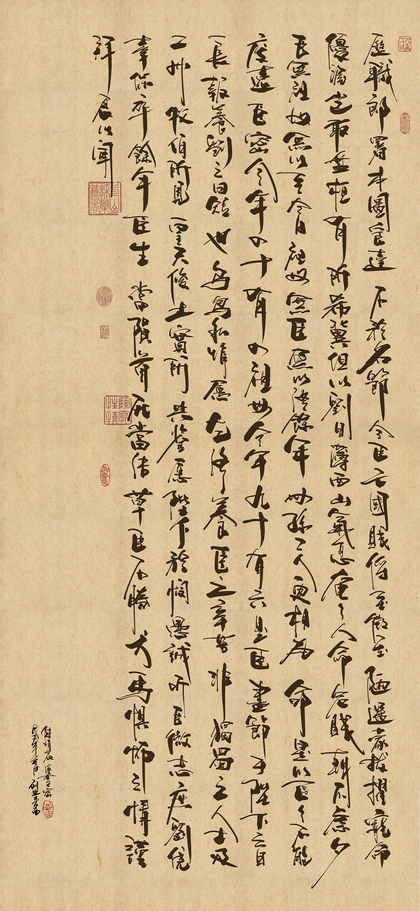 歷職郎署本圖宦達不矜名節今臣亡國賤俘至微至陋過蒙拔擢寵命
優渥豈敢盤桓有所希冀但以劉日薄西山氣息奄奄人命危賤朝不慮夕
臣無祖母無以至今日祖母無臣無以終餘年母孫二人更相為命是以區區不能
廢遠臣密今年四十有四祖母今年九十有六是臣盡節於陛下之日
長報養劉之日短也烏鳥私情願乞終養臣之辛苦非獨蜀之人士及
二州牧伯所見皇天後土實所共鑒願陛下矜憫愚誠聽臣微志庶劉僥
幸保卒餘年臣生當隕首死當結草臣不勝犬馬懼怖之情謹
拜表以聞